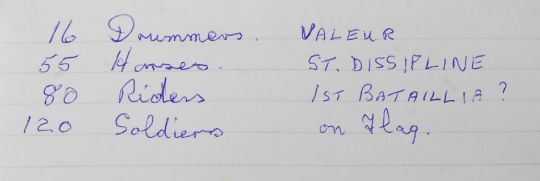 16 Drummers. VALEUR
55 Horses. ST. DISSIPLINE
80 Riders 1ST BATAILLIA ?
120 Soldiers on Flag.